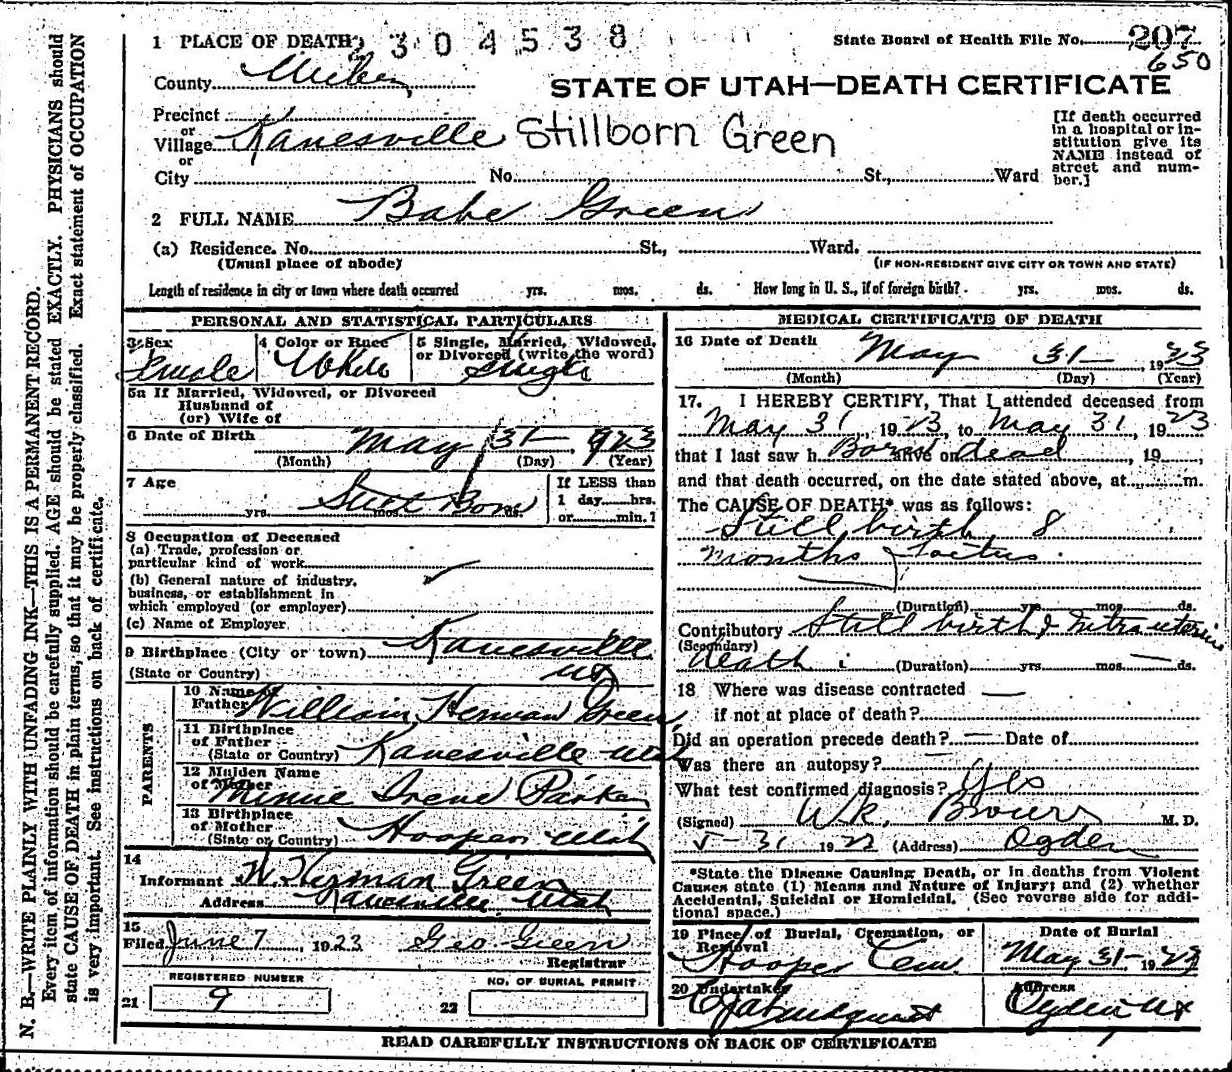 N. B.—WRITE PLAINLY WITH UNFADING INK—THIS IS A PERMANENT RECORD.
Every item of information should be carefully supplied. AGE should be stated EXACTLY. PHYSICIANS should
state CAUSE OF DEATH in plain terms, so that it may be properly classified. Exact statement of OCCUPATION
is very important. See instructions on back of certificate.
1 PLACE OF DEATH 2 3 0 4 5 3 8
State Board of Health File No. 207
650
County
STATE OF UTAH—DEATH CERTIFICATE
Precinct
or
Village Kanesville Stillborn Green
or
City No. St., Ward
[If death occurred
in a hospital or in-
stitution give its
NAME instead of
street and num-
ber.]
2 FULL NAME Babe Green
(a) Residence. No. St., Ward.
(Usual place of abode)
(IF NON-RESIDENT GIVE CITY OR TOWN AND STATE)
Length of residence in city or town where death occurred yrs. mos. ds. How long in U. S., if of foreign birth? yrs. mos. ds.
PERSONAL AND STATISTICAL PARTICULARS
3 Sex
Female
4 Color or Race
White
5 Single, Married, Widowed,
or Divorced (write the word)
Single
5a If Married, Widowed, or Divorced
Husband of
(or) Wife of
6 Date of Birth May 31 1923
(Month) (Day) (Year)
7 Age Still Born
yrs. mos. ds.
If LESS than
1 day hrs.
or min.?
8 Occupation of Deceased
(a) Trade, profession or
particular kind of work
(b) General nature of industry,
business, or establishment in
which employed (or employer)
(c) Name of Employer
9 Birthplace (City or town) Kanesville
(State or Country)
PARENTS
10 Name of
Father William Herman Green
11 Birthplace
of Father
(State or Country) Kanesville Utah
12 Maiden Name
of Mother Minnie Irene Parker
13 Birthplace
of Mother
(State or Country) Hooper Utah
14
Informant W. Herman Green
Address Kanesville Utah
15
Filed June 7, 1923 Geo Green
Registrar
REGISTERED NUMBER
21 9
NO. OF BURIAL PERMIT
22
MEDICAL CERTIFICATE OF DEATH
16 Date of Death May 31 1923
(Month) (Day) (Year)
17. I HEREBY CERTIFY, That I attended deceased from
May 31, 1923, to May 31, 1923
that I last saw h Born alive on dead, 19
and that death occurred, on the date stated above, at m.
The CAUSE OF DEATH* was as follows:
Still birth 8
months foetus.
(Duration) yrs. mos. ds.
Contributory Still birth & intra uterine
(Secondary)
death (Duration) yrs. mos. ds.
18 Where was disease contracted —
if not at place of death?
Did an operation precede death? — Date of
Was there an autopsy? —
What test confirmed diagnosis? Yes
(Signed) M. D.
5-31 1923 (Address) Ogden
*State the Disease Causing Death, or in deaths from Violent
Causes state (1) Means and Nature of Injury; and (2) whether
Accidental, Suicidal or Homicidal. (See reverse side for addi-
tional space.)
19 Place of Burial, Cremation, or
Removal
Hooper Cem.
Date of Burial
May 31 1923
20 Undertaker
Address
Ogden Ut
READ CAREFULLY INSTRUCTIONS ON BACK OF CERTIFICATE